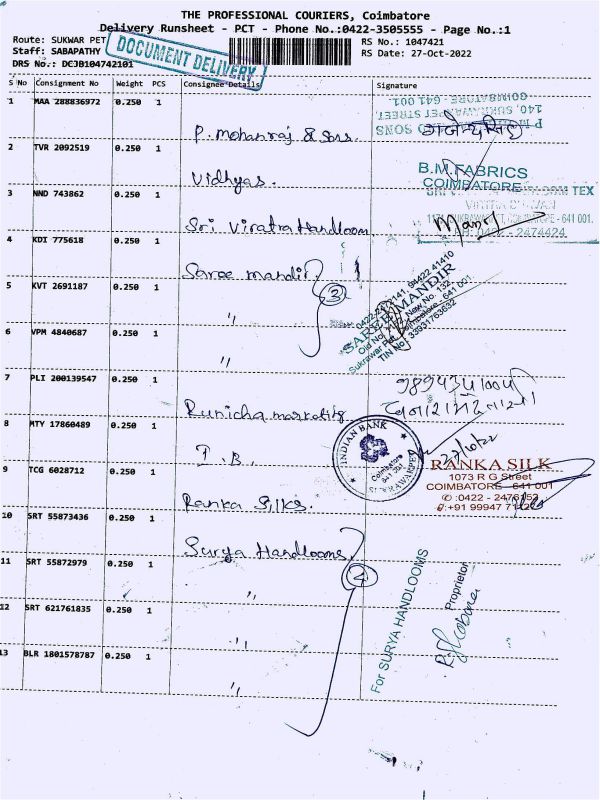 THE PROFESSIONAL COURIERS, Coimbatore
Delivery Runsheet - PCT - Phone No.:0422-3505555 - Page No.:1
Route: SUKWAR PET
RS No.: 1047421
Staff: SABAPATHY
RS Date: 27-Oct-2022
DRS No.: DCJB104742101
DOCUMENT DELIVERY
S No Consignment No Weight PCS Consignee Details Signature
1 MAA 288836972 0.250 1 P. Mohanraj & Sons.
COIMBATORE - 641 001.
2 TVR 2092519 0.250 1 Vidhyas.
B.M.FABRICS
COIMBATORE
3 NND 743862 0.250 1 Sri Viratra Handloom
TEX
COIMBATORE - 641 001.
PH: 0422 - 2474424
4 KDI 775618 0.250 1 Saree mandir
5 KVT 2691187 0.250 1 "
3
6 VPM 4840687 0.250 1 "
SAREE MANDIR
New No. 132,
Coimbatore - 641 001.
TIN No: 33931763632
7 PLI 200139547 0.250 1 Runicha marketing
8 MTY 17860489 0.250 1 I.B
INDIAN BANK
Coimbatore
SUKRAWARPET
9 TCG 6028712 0.250 1 Ranka Silks.
RANKA SILK
1073 R G Street
COIMBATORE - 641 001
10 SRT 55873436 0.250 1 Surya Handlooms
11 SRT 55872979 0.250 1 "
12 SRT 621761835 0.250 1 "
13 BLR 1801578787 0.250 1 "
For SURYA HANDLOOMS
Proprietor